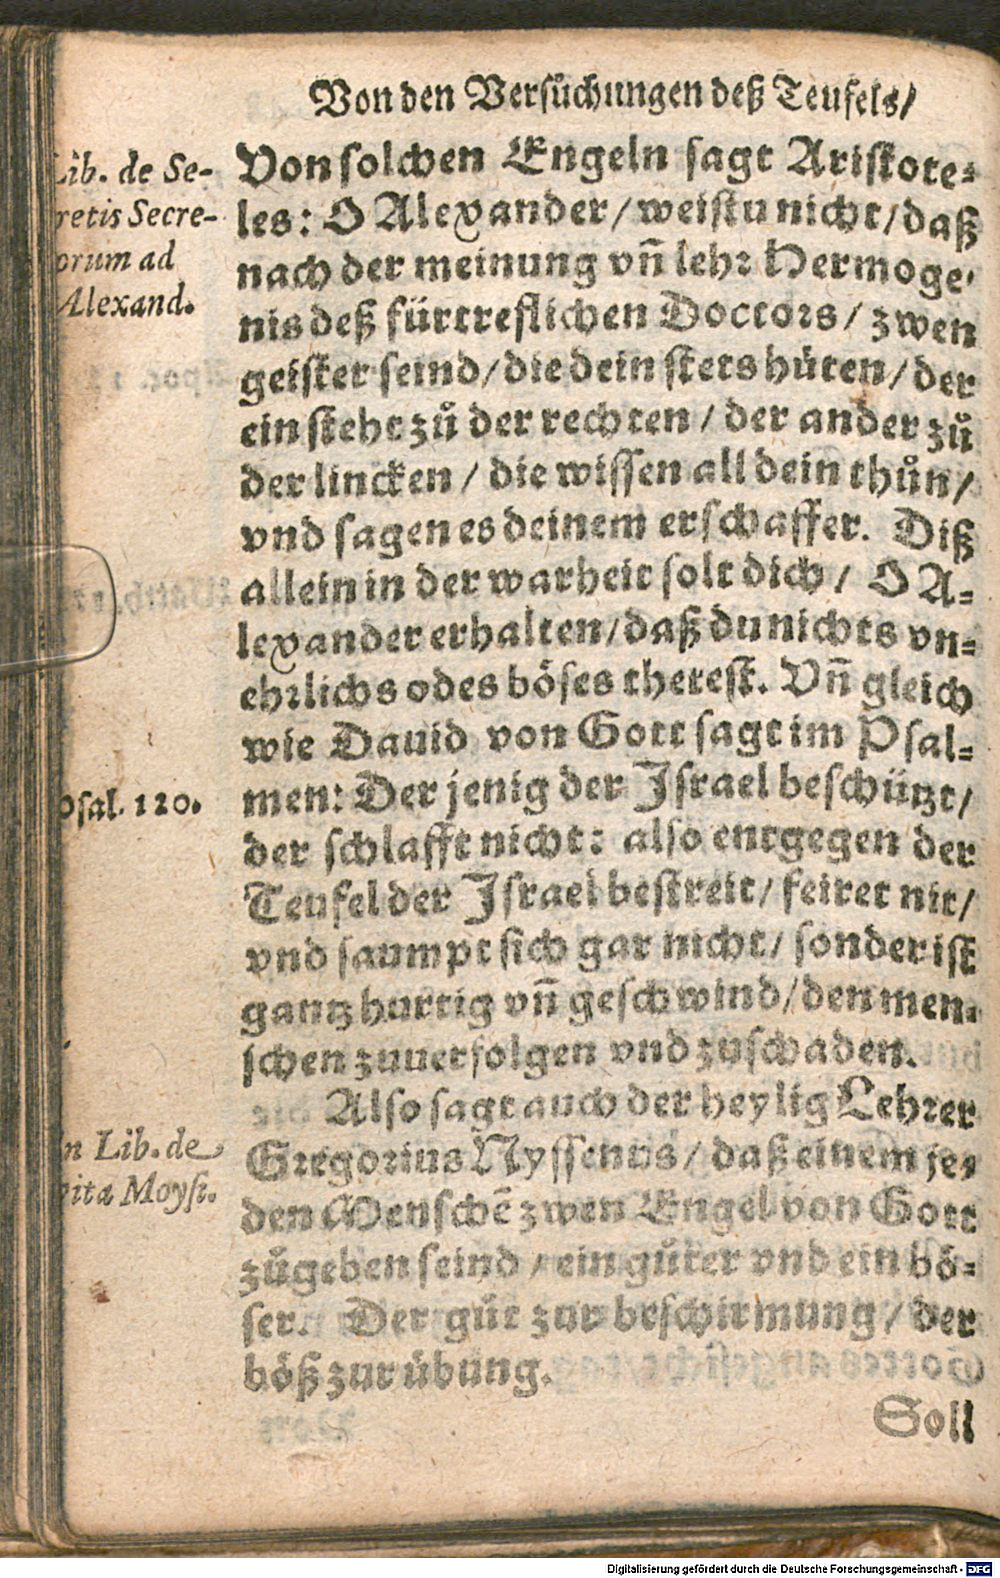 Von den Versůchungen deß Teufels/
Lib. de Se-
cretis Secre-
torum ad
Alexand.
Von solchen Engeln sagt Aristote-
les: O Alexander/ weistu nicht/ daß
nach der meinung vñ lehr Hermoge-
nis deß fürtreflichen Doctors/ zwen
geister seind/ die dein stets hüten/ der
ein steht zů der rechten/ der ander zů
der lincken/ die wissen all dein thůn/
vnd sagen es deinem erschaffer. Diß
allein in der warheit solt dich/ O A-
lexander erhalten/ daß du nichts vn-
ehrlichs odes böses thetest. Vñ gleich
wie Dauid von Gott sagt im Psal-
Psal. 120.
men: Der jenig der Israel beschützt/
der schlafft nicht: also entgegen der
Teufel der Israel bestreit/ feiret nit/
vnd saumpt sich gar nicht/ sonder ist
gantz hurtig vñ geschwind/ den men-
schen zuuerfolgen vnd zuschaden.
Also sagt auch der heylig Lehrer
In Lib. de
vita Moysi.
Gregorius Nyssenus/ daß einem je-
den Menschẽ zwen Engel von Gott
zůgeben seind/ ein gůter vnd ein bö-
ser. Der gůt zur beschirmung/ der
böß zur übung.
Soll
Digitalisierung gefördert durch die Deutsche Forschungsgemeinschaft - DFG